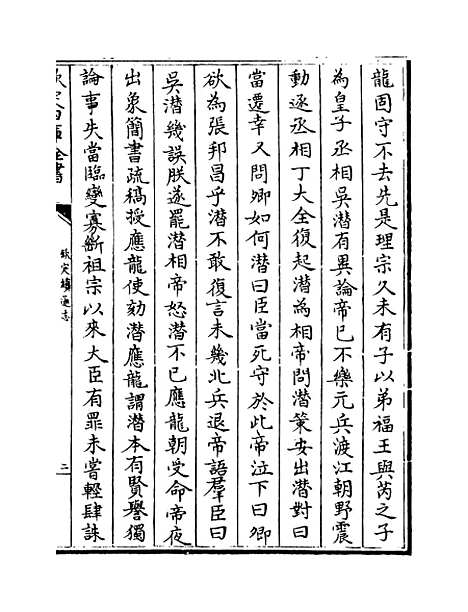 龍固守不去先是理宗久未有子以弟福王與芮之子
為皇子丞相吳潛有異論帝已不樂元兵渡江朝野震
動逐丞相丁大全復起潛為相帝問潛策安出潛對曰
當遷幸又問卿如何潛曰臣當死守於此帝泣下曰卿
欲為張邦昌乎潛不敢復言未幾北兵退帝語羣臣曰
吳潛幾誤朕遂罷潛相帝怒潛不已應龍朝受命帝夜
出象簡書疏稿授應龍使劾潛應龍謂潛本有賢譽獨
論事失當臨變寡斷祖宗以來大臣有罪未嘗輕肆誅
欽定四庫全書
欽定續通志
二